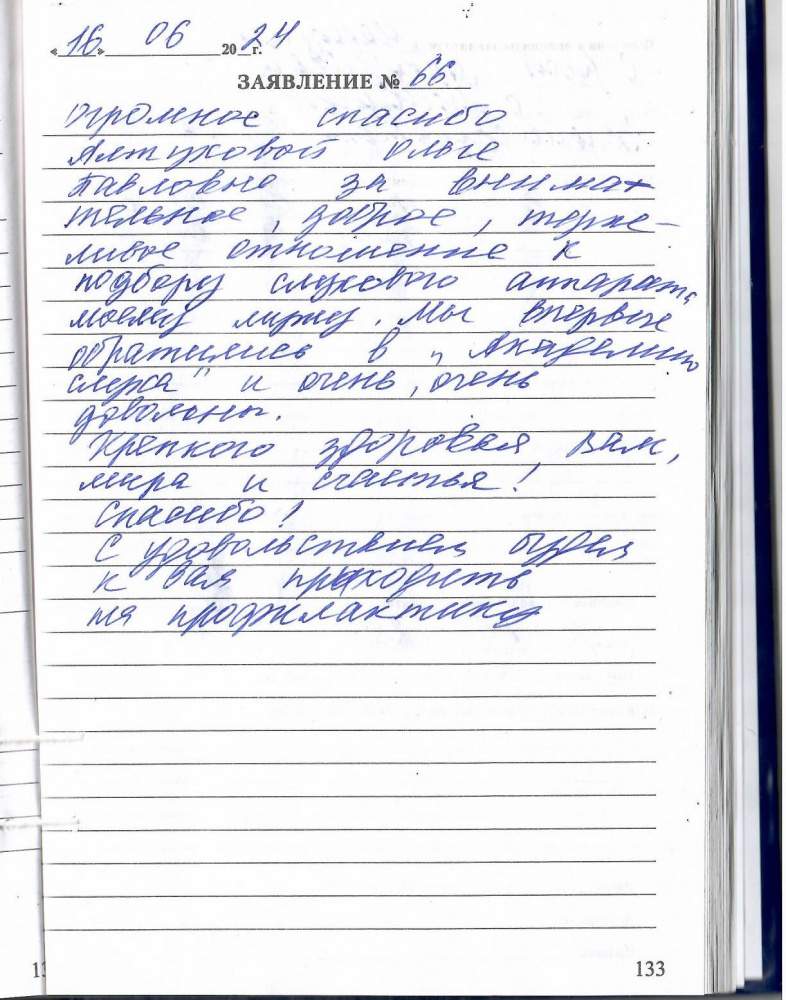 «16» 06 20 г. 24
ЗАЯВЛЕНИЕ № 66
Огромное спасибо
Алтуховой Ольге
Павловне за внима-
тельное, доброе, терпе-
ливое отношение к
подбору слухового аппарата
моему мужу. Мы впервые
обратились в „Академию
слуха" и очень, очень
довольны.
Крепкого здоровья Вам,
мира и счастья!
Спасибо!
С удовольствием будем
к Вам приходить
на профилактику
133